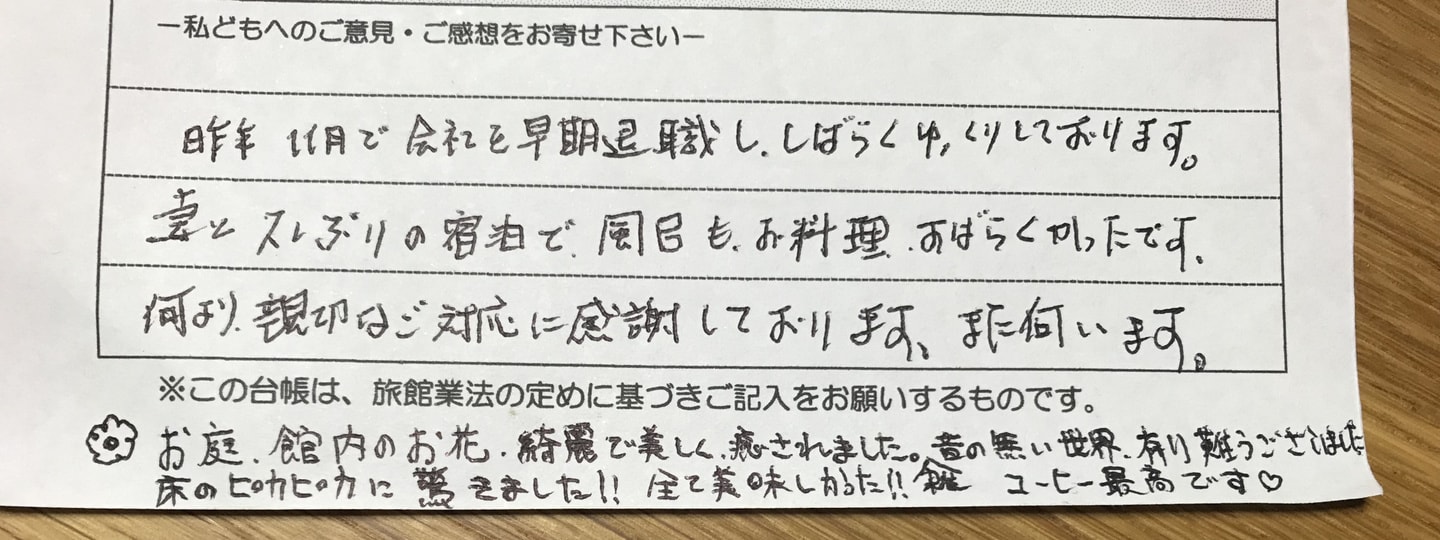 ー私どもへのご意見・ご感想をお寄せ下さいー
昨年 11月で会社を早期退職し、しばらくゆっくりしております。
妻と久しぶりの宿泊で、風呂も、お料理、すばらしかったです、
何より、親切なご対応に感謝しております、また伺います。
※この台帳は、旅館業法の定めに基づきご記入をお願いするものです。
お庭、館内のお花、綺麗で美しく、癒されました。音の無い世界、有り難うございました
床のピカピカに驚きました!! 全て美味しかった!! コーヒー最高です♡